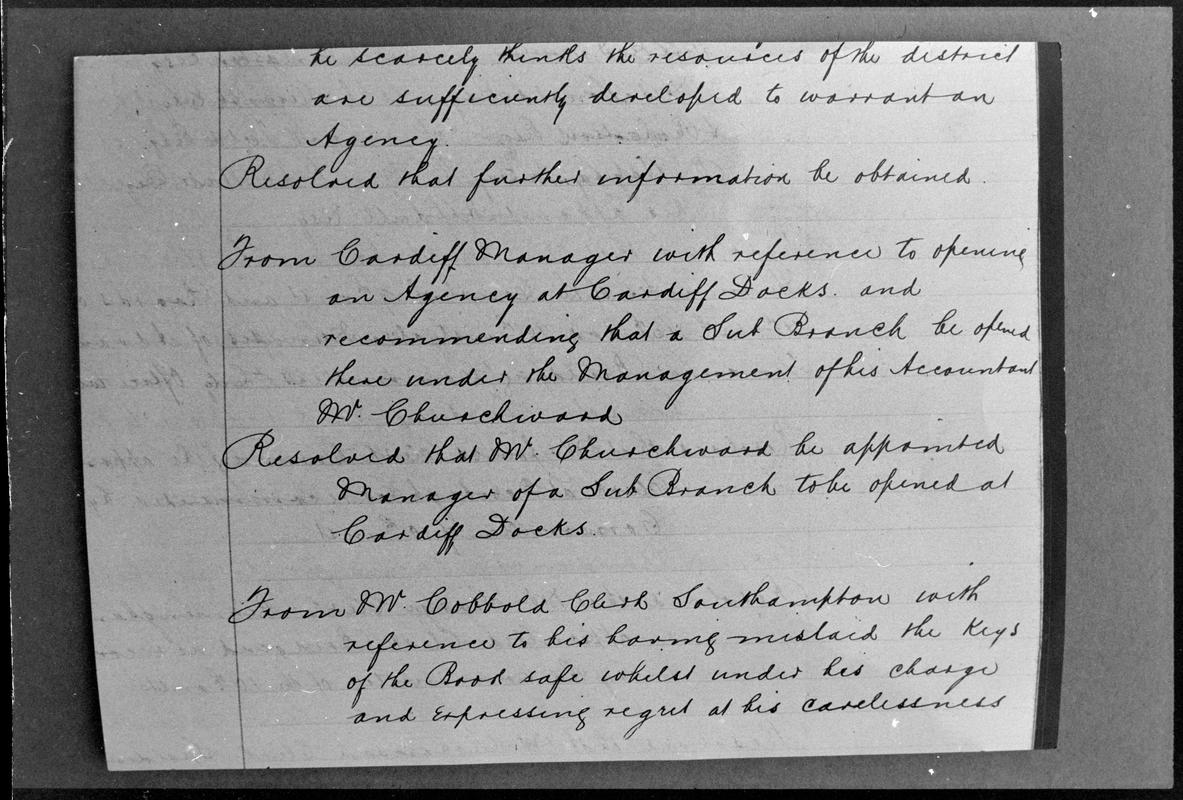 he scarcely thinks the resources of the district
are sufficiently developed to warrant an
Agency.
Resolved that further information be obtained.
From Cardiff Manager with reference to opening
an Agency at Cardiff Docks. and
recommending that a Sub Branch be opened
there under the Management of his Accountant
Mr. Churchward
Resolved that Mr. Churchward be appointed
Manager of a Sub Branch to be opened at
Cardiff Docks.
From Mr. Cobbold Clerk Southampton with
reference to his having mislaid the Keys
of the Book safe whilst under his charge
and expressing regret at his carelessness